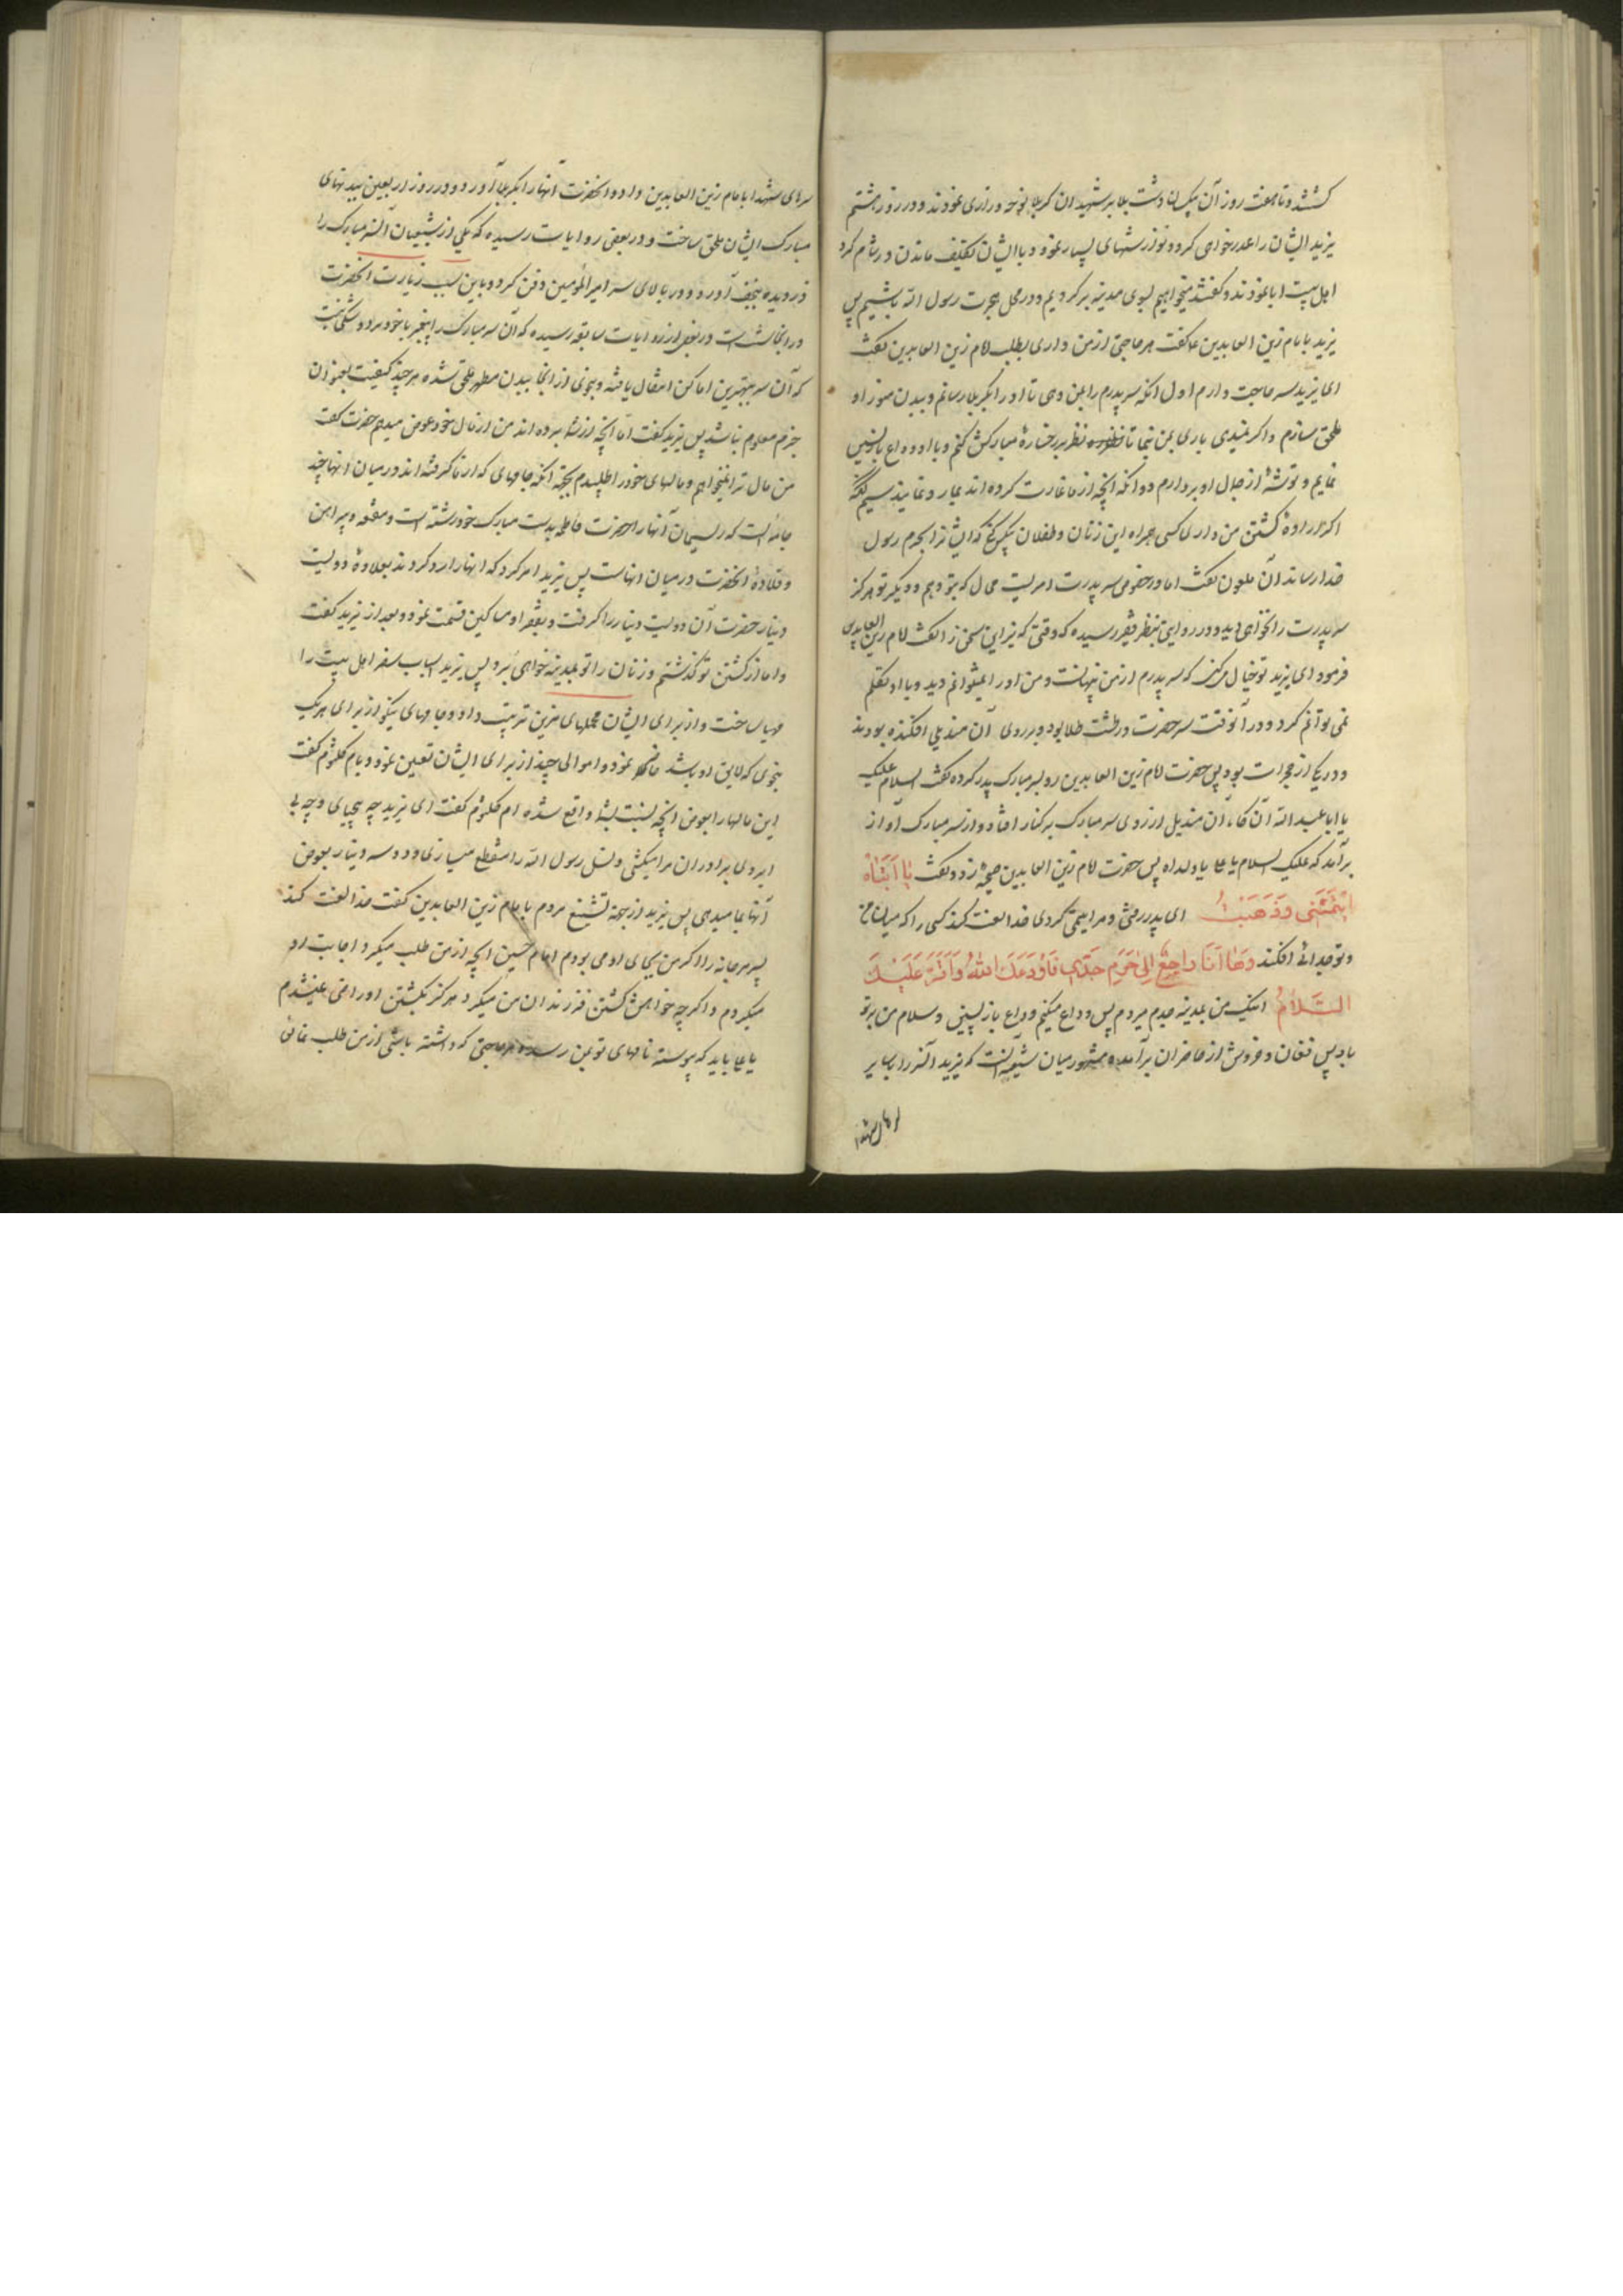 کشتند و تا هفت روز آن پیکسان دشت بلا بر شهیدان کربلا نوحه و زاری نمودند و در روز هشتم
یزید ایشان را عذرخواهی کرد و نوازشهای بسیار نمود و با ایشان تکلیف ماندن در شام کرد
اهل بیت ابا نمودند و گفتند میخواهیم بسوی مدینه برگردیم و در محل هجرت رسول الله باشیم پس
یزید با امام زین العابدین ع گفت هر حاجتی از من داری بطلب امام زین العابدین گفت
ای یزید سه حاجت دارم اول آنکه سر پدرم را بمن دهی تا او را بکربلا رسانم و ببدن منور او
ملحق سازم و اگر ندی باری بمن نما تا نظر بر رخساره مبارکش کنم و با او وداع بازپسین
نمایم و توشه از جمال او بردارم دو آنکه آنچه از ما غارت کرده اند بما رد نمایند سیم آنکه
اگر اراده کشتن من داری کسی همراه این زنان و طفلان بیکس کن که ایشانرا بحرم رسول
خدا رساند آن ملعون گفت اما در خصوص سر پدرت امریست محال که بتو دهم و دیگر تو هرگز
سر پدرت را نخواهی دید و در روایتی بنظر فقیر رسیده که وقتی که یزید این سخن را گفت امام زین العابدین
فرمود ای یزید تو خیال میکنی که سر پدرم از من پنهانست و من او را نمیتوانم دید و با او تکلم
نمی توانم کرد و در آنوقت سر حضرت در طشت طلا بود و بر روی آن مندیلی افکنده بودند
و در یکی از حجرات بود پس حضرت امام زین العابدین رو بسر مبارک پدر کرده گفت السلام علیک
یا ابا عبد الله آن گاه آن مندیل از روی سر مبارک بر کنار افتاد و از سر مبارک آواز
برآمد که علیک السلام یا علی یا ولداه پس حضرت امام زین العابدین صیحه زد و گفت یَا اَبَتَاهُ
اَیْتَمْتَنِی وَ ذَهَبْتَ ای پدر رفتی و مرا یتیم کردی خدا لعنت کند کسی را که میان من
و تو جدائی افکند وَهَا اَنَا رَاجِعٌ اِلیٰ حَرَمِ جَدِّی فَاَوْدَعَکَ اللهُ وَ اَقْرَءُ عَلَیْکَ
السَّلَامُ اینک من بمدینه جدم میروم پس وداع میکنم وداع بازپسینی و سلام من بر تو
باد پس فغان و خروش از حاضران برآمد و مشهور میان شیعه آنست که یزید آنسر را با سایر
سرهای شهدا با امام زین العابدین داد و آنحضرت آنها را بکربلا آورد و در روز اربعین ببدنهای
مبارک ایشان ملحق ساخت و در بعضی روایات رسیده که یکی از شیعیان آنسر مبارک را
دزدیده بنجف آورد و در بالای سر امیر المؤمنین دفن کرد و باین سبب زیارت آنحضرت
در آنجا سنت است و در بعضی از روایات سابقه رسیده که آن سر مبارک را پیغمبر با خود برد و شکی نیست
که آن سر ببهترین اماکن انتقال یافته و بنحوی از انحا ببدن مطهر ملحق شده هر چند کیفیت بعنوان
جزم معلوم نباشد پس یزید گفت اما آنچه از شما برده اند من از مال خود عوض میدهم حضرت گفت
من مال ترا نمیخواهم و مالهای خود را طلبیدم بجهة آنکه جامهای که از ما گرفته اند در میان آنها چند
جامه است که ریسمان آنها را حضرت فاطمه بدست مبارک خود رشته است و مقنعه و پیراهن
و قلاده آنحضرت در میان آنهاست پس یزید امر کرد که آنها را رد کردند بعلاوه دویست
دینار حضرت آن دویست دینار را گرفت و بفقرا و مساکین قسمت نمود و بعد از آن یزید گفت
و اما از کشتن تو گذشتم و زنان را تو بمدینه خواهی برد پس یزید اسباب سفر اهل بیت را
مهیا ساخت و از برای ایشان محملهای مزین ترتیب داد و جامهای نیکو از برای هریک
بنحوی که لایق او باشد حاضر نمود و اموالی چند از برای ایشان تعیین نمود و بام کلثوم گفت
این مالها را بعوض آنچه نسبت بشما واقع شده ام کلثوم گفت ای یزید چه بیحیای و چه بی
ابروی برادران مرا میکشی و نسل رسول الله را منقطع میسازی و دو سه دینار بعوض
آنها بما میدهی پس یزید از بجهة تشنیع مردم با امام زین العابدین گفت خدا لعنت کند
پسر مرجانه را اگر من بجای او می بودم امام حسین آنچه از من طلب میکرد اجابت او
میکردم و اگرچه خواهش کشتن فرزندان من میکرد هرگز بکشتن او راضی نمیشدم
یا علی باید که پیوسته نامهای تو بمن رسد و هر حاجتی که داشته باشی از من طلب نمائی